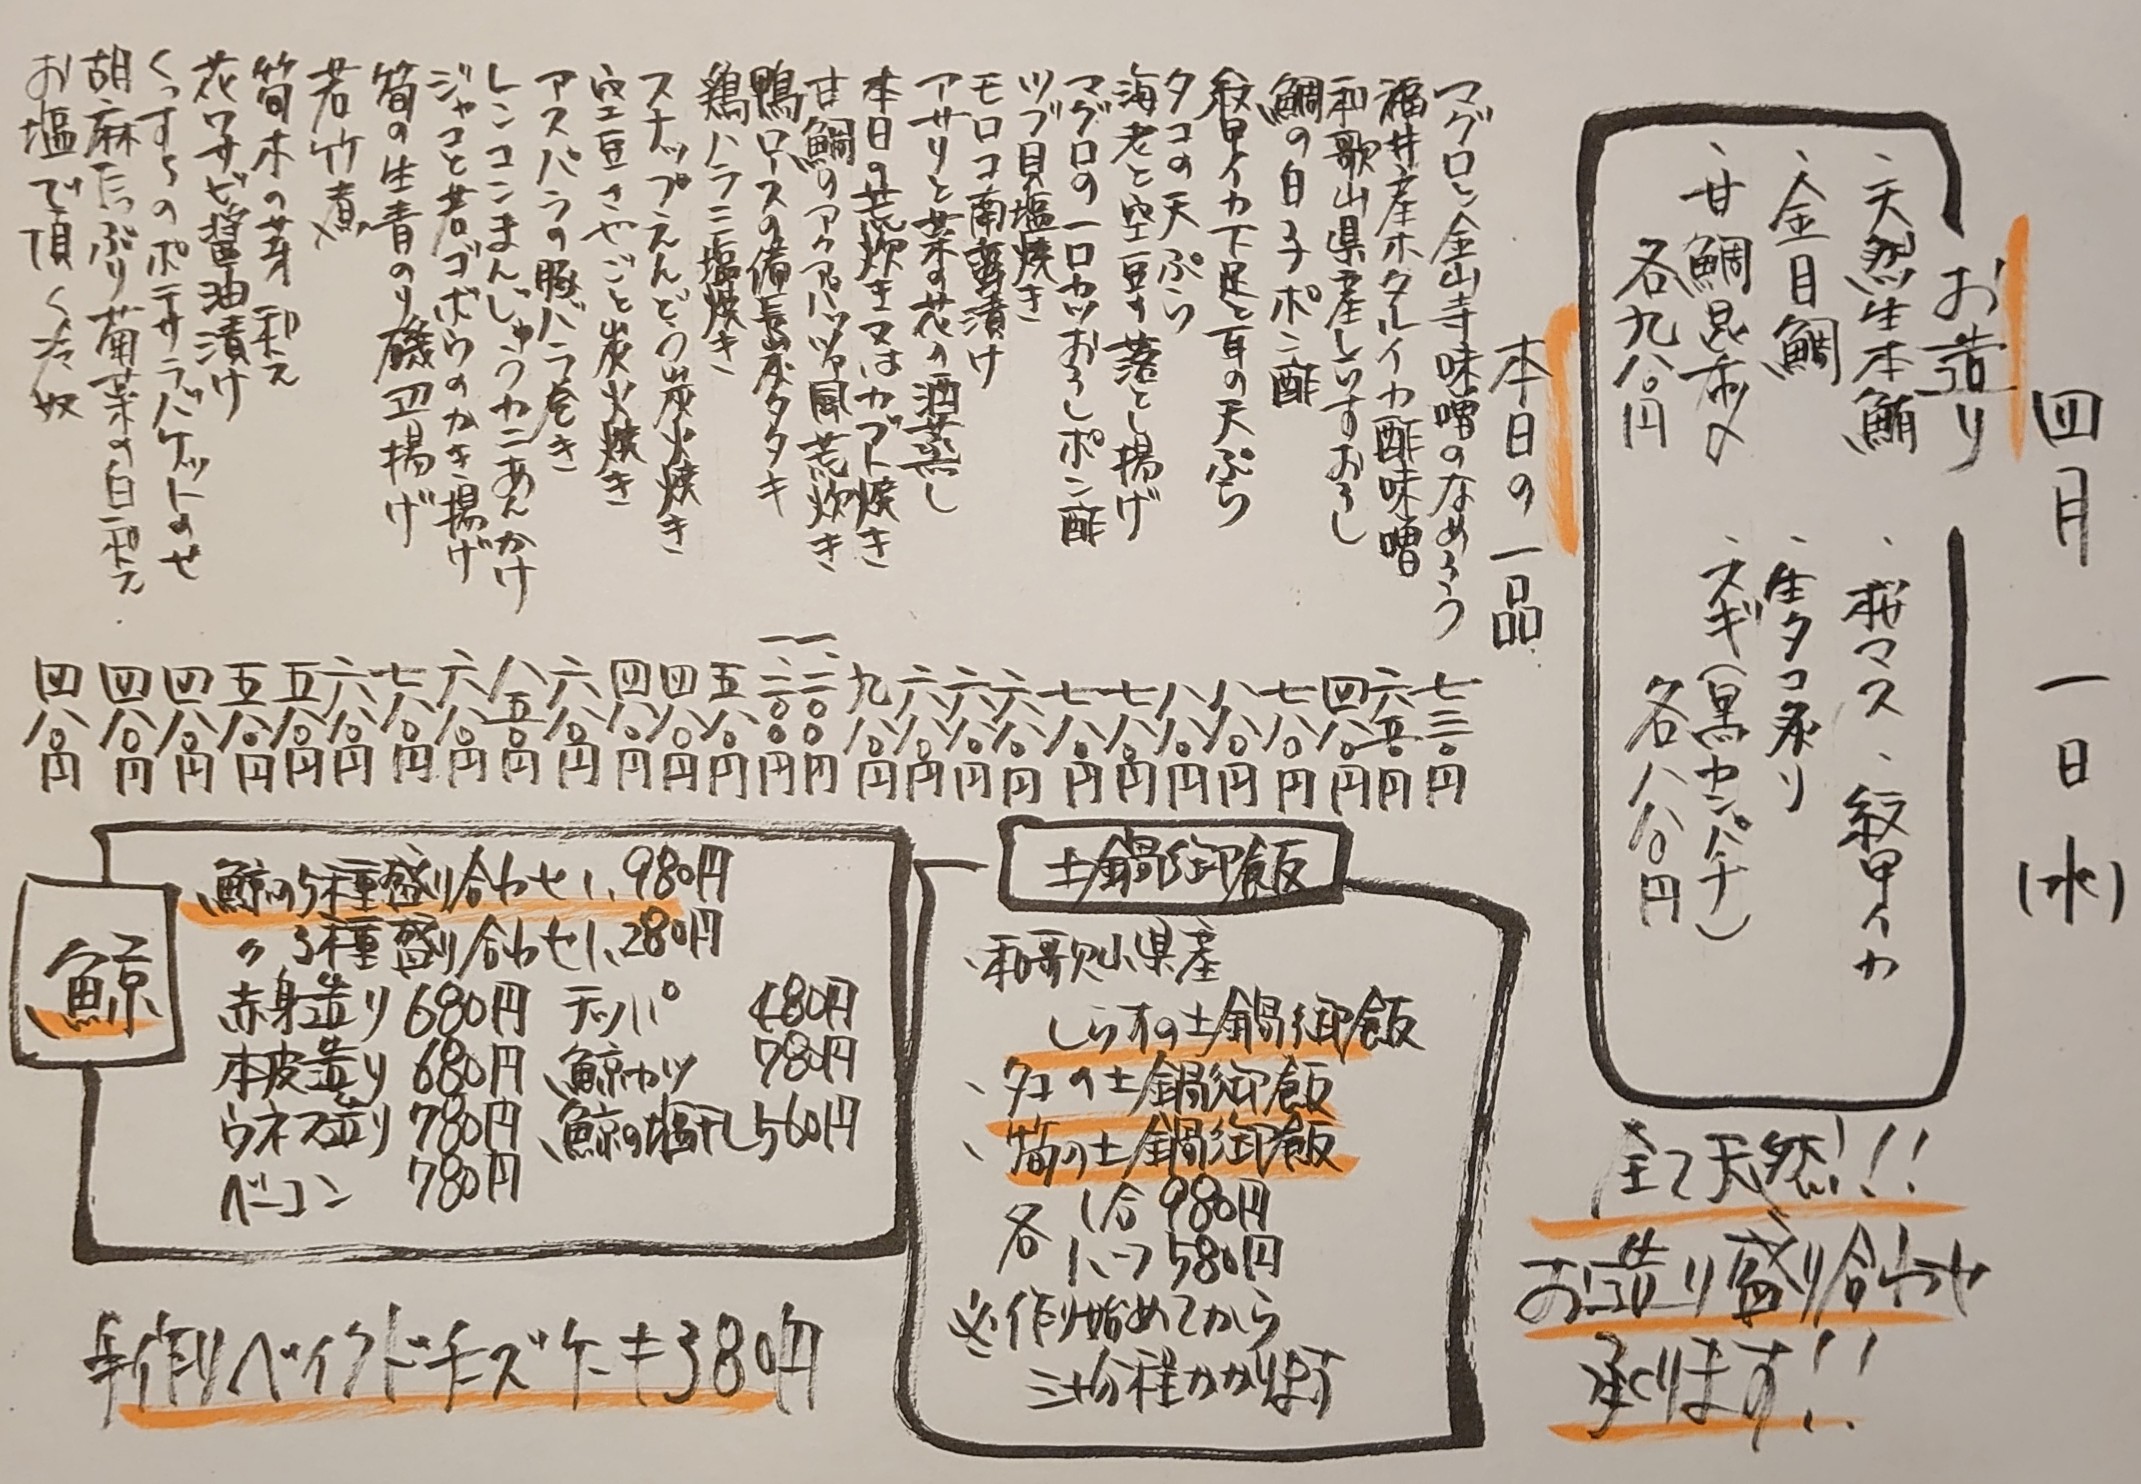 四月一日(水)
お造り
、天然生本鮪
、金目鯛
、甘鯛昆布〆
各九八〇円
、桜マス、紋甲イカ
、生タコ造り
、スギ(黒カンパチ)
各八八〇円
全て天然!!!
お造り盛り合わせ
承ります!!
本日の一品
マグロと金山寺味噌のなめろう 七三〇円
福井産ホタルイカ酢味噌 六五〇円
和歌山県産しらすおろし 四八〇円
鯛の白子ポン酢 七八〇円
紋甲イカ下足と耳の天ぷら 八八〇円
タコの天ぷら 八八〇円
海老と空豆の落とし揚げ 七八〇円
マグロの一口カツおろしポン酢 七八〇円
ツブ貝塩焼き 六八〇円
モロコ南蛮漬け 六八〇円
アサリと菜の花の酒蒸し 六八〇円
本日の荒炊き又はカブト焼き 九八〇円
甘鯛のアクアパッツァ風荒炊き 一、二〇〇円
鴨ロースの備長炭タタキ 一、二〇〇円
鶏ハラミ塩焼き 五八〇円
スナップえんどう炭火焼き 四八〇円
空豆さやごと炭火焼き 四八〇円
アスパラの豚バラ巻き 六八〇円
レンコンまんじゅうカニあんかけ 八五〇円
ジャコと若ゴボウのかき揚げ 六八〇円
筍の生青のり磯辺揚げ 七八〇円
若竹煮 六八〇円
筍木の芽和え 五八〇円
花ワサビ醤油漬け 五八〇円
くっすぅのポテサラバケットのせ 四八〇円
胡麻たっぷり菊菜の白和え 四八〇円
お塩で頂く冷奴 四八〇円
土鍋御飯
、和歌山県産
しらすの土鍋御飯
、タコの土鍋御飯
、筍の土鍋御飯
各 1合 980円
1、5合 1,580円
※作り始めてから
三十分程かかります
鯨
、鯨の5種盛り合わせ 1、980円
〃 3種盛り合わせ 1、280円
赤身造り 680円 テッパ° 480円
本皮造り 680円 、鯨カツ 780円
ウネス造り 780円 、鯨の塩干し 560円
ベーコン 780円
手作りベイクドチーズケーキ380円